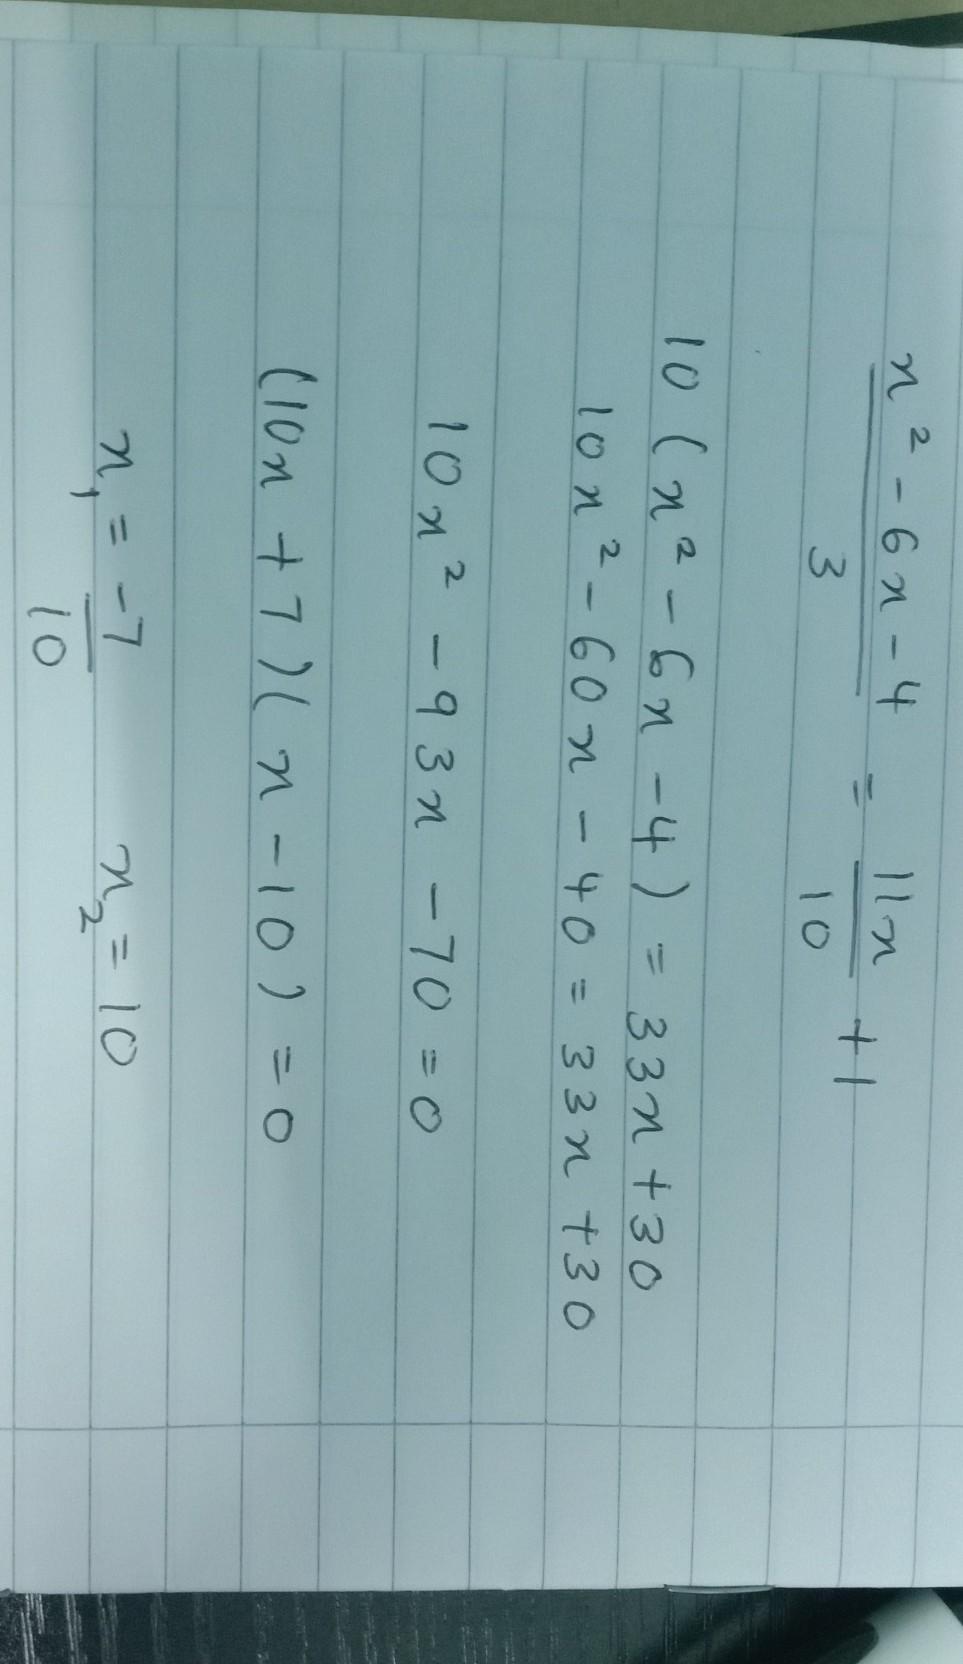 x² - 6x - 4 / 3 = 11x / 10 + 1
10 (x² - 6x - 4) = 33x + 30
10x² - 60x - 40 = 33x + 30
10x² - 93x - 70 = 0
(10x + 7)(x - 10) = 0
x₁ = -7 / 10 x₂ = 10